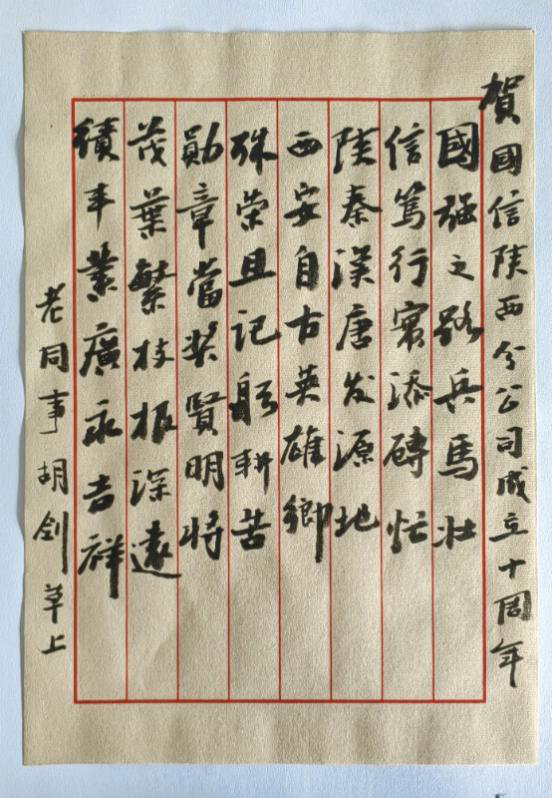 賀國信陕西分公司成立十周年
國强之路兵馬壮
信篤行添磚忙
陕秦漢唐发源地
西安自古英雄鄉
殊荣且记躬耕苦
勛章當奖賢明将
茂葉繁枝根深遠
績丰業廣永吉祥
老同事胡剑草上